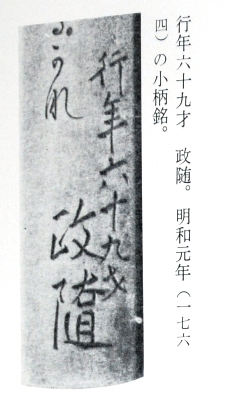 行年六十九才　政随。　明和元年（一七六
四）の小柄銘。
行年六十九才
政隨